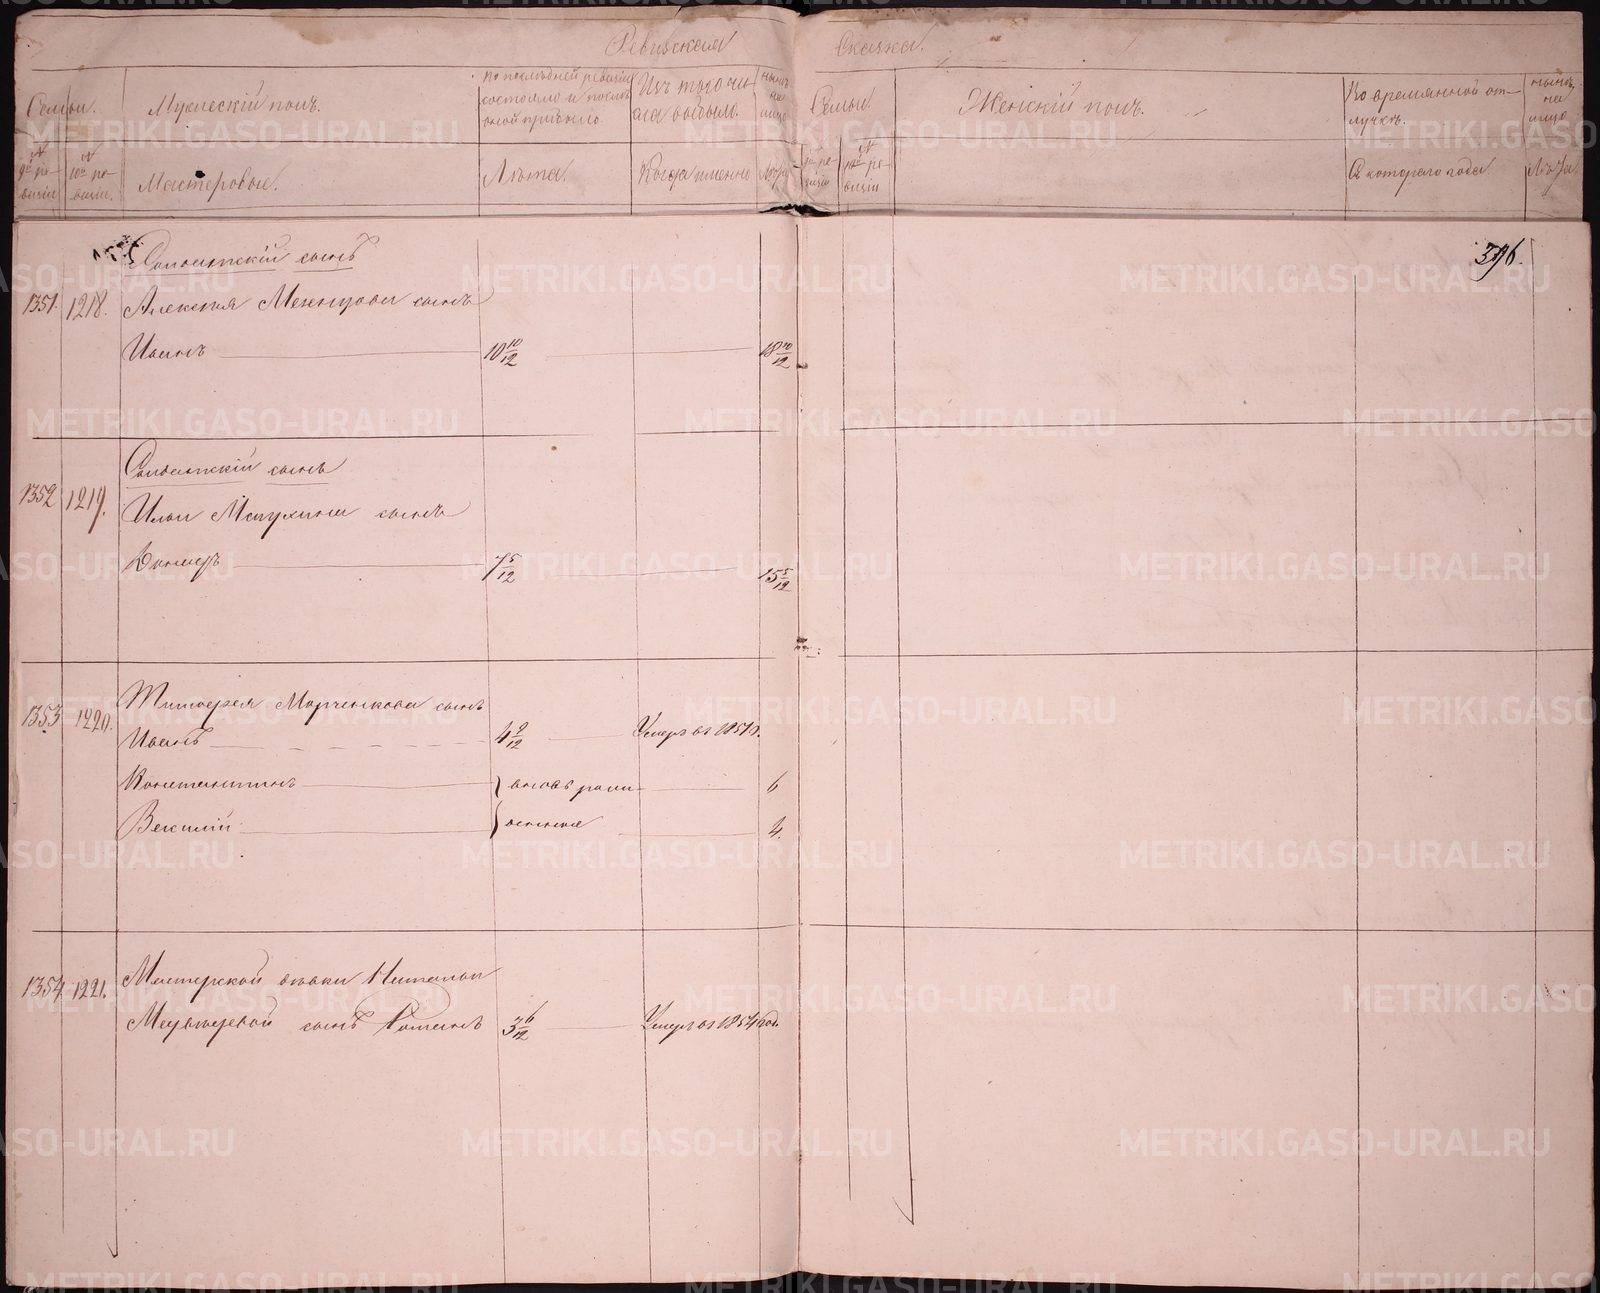 Ревизская Сказка.
Семьи.
Мужескій полъ.
По послѣдней ревизіи состояло и послѣ оной прибыло.
Изъ того числа выбыло.
Нынѣ на лицо
Семьи.
Женскій полъ.
Во временной отлучкѣ.
Нынѣ на лицо
№ 9й ревизіи
№ 10й ревизіи.
Мастеровые.
Лѣта.
Когда именно
Лѣта
№ 9й ревизіи
№ 10й ревизіи
Съ котораго года
Лѣта
396.
Солдатскій сынъ
1351. 1218. Алексѣя Мехнцова сынъ
Иванъ 10 10/12 18 10/12
Солдатскій сынъ
1352 1219. Ильи Мапухина сынъ
7 5/12 15 5/12
1353 1220. Тимофея Марченкова сынъ
Иванъ 4 9/12 Умеръ въ 1851 г.
Константинъ вновь рож 6
Василій денные 4.
1354 1221. Мастерской вдовы Натальи
Медвѣдевой сынъ Романъ 3 6/12 Умеръ въ 1854 год.
METRIKI.GASO-URAL.RU